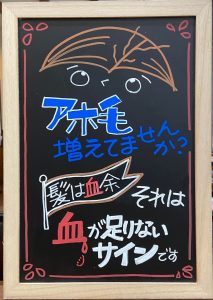 アホ毛
増えてませんか?
髪は血余
それは
血が足りない
サインです